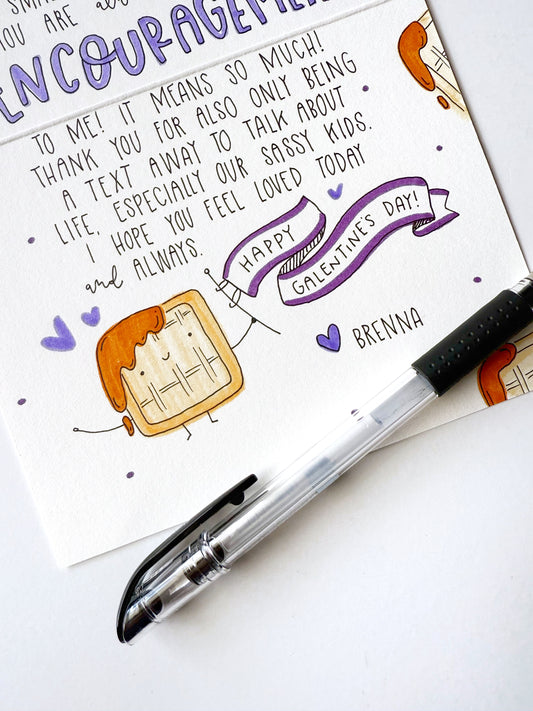 YOU ARE
ENCOURAGEMEN
TO ME! IT MEANS SO MUCH!
THANK YOU FOR ALSO ONLY BEING
A TEXT AWAY TO TALK ABOUT
LIFE, ESPECIALLY OUR SASSY KIDS.
I HOPE YOU FEEL LOVED TODAY
and ALWAYS.
HAPPY
GALENTINE'S DAY!
BRENNA